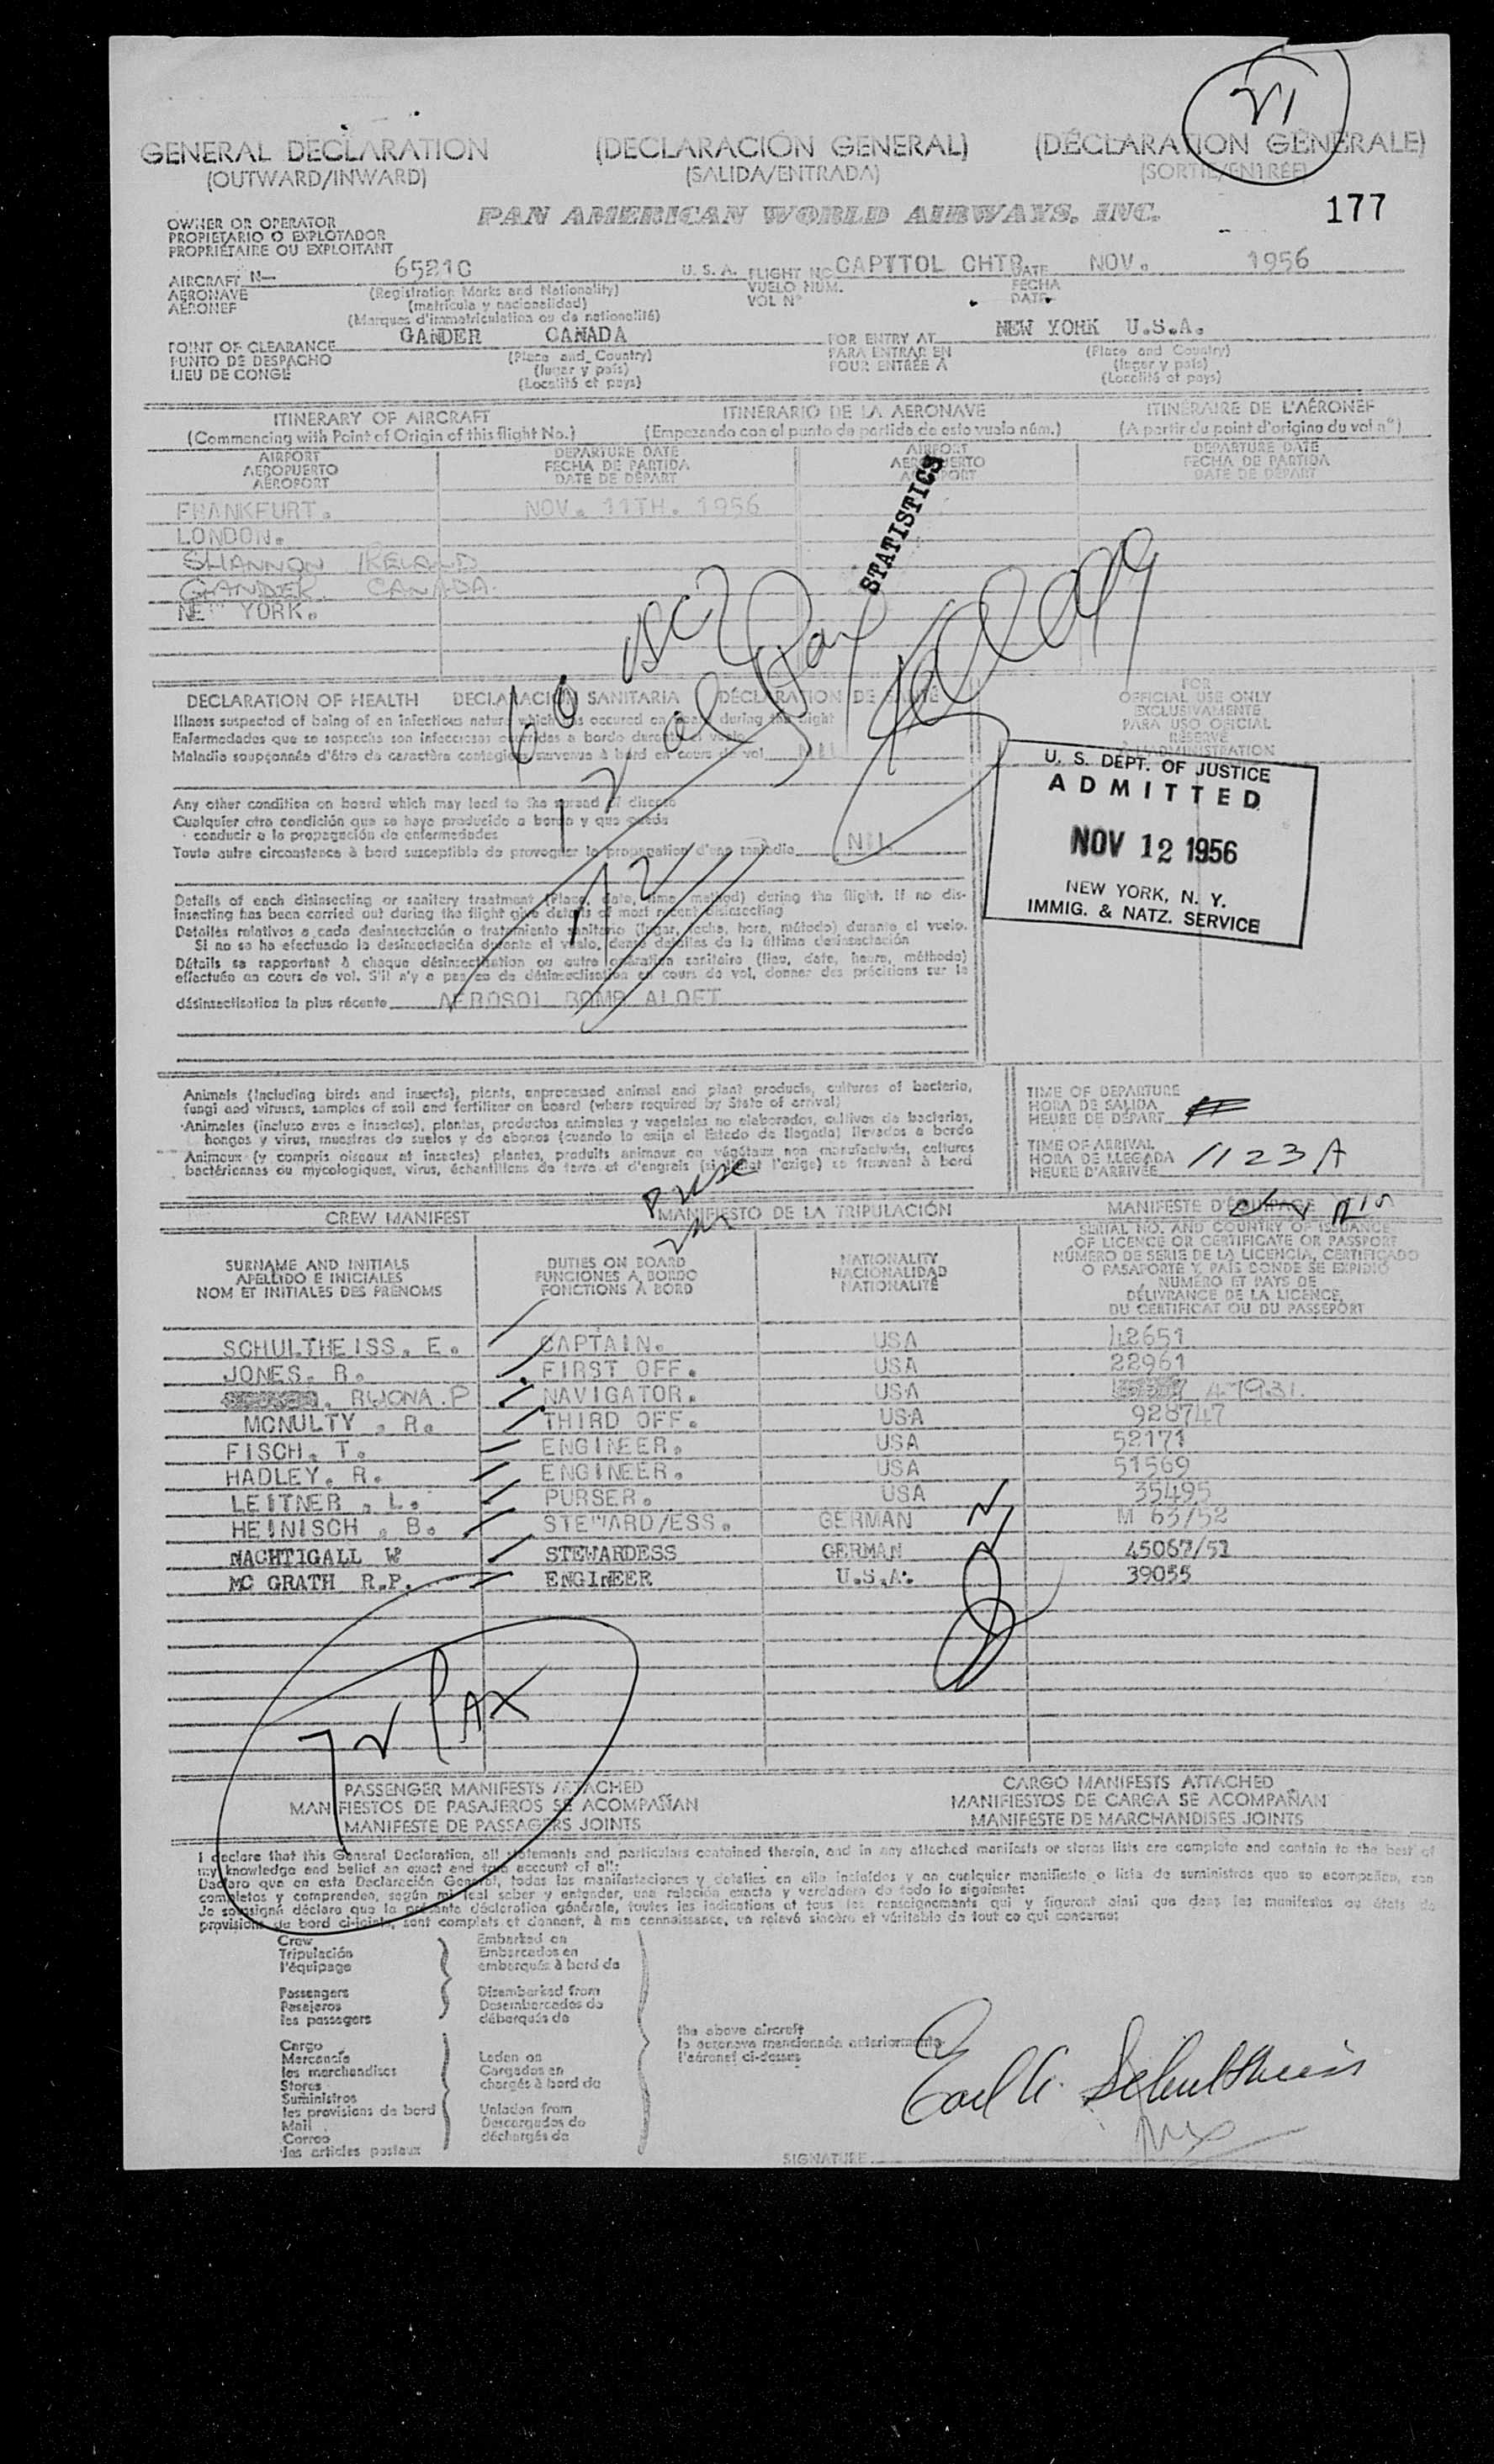 21
GENERAL DECLARATION (DECLARACIÓN GENERAL) (DÉCLARATION GÉNÉRALE)
(OUTWARD/INWARD) (SALIDA/ENTRADA) (SORTIE/ENTRÉE)
177
OWNER OR OPERATOR
PROPIETARIO O EXPLOTADOR
PROPRIÉTAIRE OU EXPLOITANT
PAN AMERICAN WORLD AIRWAYS, INC.
AIRCRAFT N— 6521C U. S. A. FLIGHT NO CAPITOL CHTR DATE NOV. 1956
AERONAVE (Registration Marks and Nationality) VUELO NÚM. FECHA
AÉRONEF (matrícula y nacionalidad) VOL Nº DATE
(Marques d'immatriculation ou de nationalité)
POINT OF CLEARANCE GANDER CANADA FOR ENTRY AT NEW YORK U.S.A.
PUNTO DE DESPACHO (Place and Country) PARA ENTRAR EN (Place and Country)
LIEU DE CONGÉ (lugar y país) POUR ENTRÉE À (lugar y país)
(Localité et pays) (Localité et pays)
ITINERARY OF AIRCRAFT ITINERARIO DE LA AERONAVE ITINÉRAIRE DE L'AÉRONEF
(Commencing with Point of Origin of this flight No.) (Empezando con el punto de partida de este vuelo núm.) (A partir du point d'origine du vol nº)
AIRPORT DEPARTURE DATE AIRPORT DEPARTURE DATE
AEROPUERTO FECHA DE PARTIDA AEROPUERTO FECHA DE PARTIDA
AÉROPORT DATE DE DÉPART AÉROPORT DATE DE DÉPART
STATISTICS
FRANKFURT. NOV. 11TH. 1956
LONDON.
SHANNON IRELAND
GANDER. CANADA.
NEW YORK.
DECLARATION OF HEALTH DECLARACIÓN SANITARIA DÉCLARATION DE SANTÉ
Illness suspected of being of an infectious nature which has occured on board during the flight
Enfermedades que se sospecha son infecciosas ocurridas a bordo durante el vuelo
Maladie soupçonnée d'être de caractère contagieux survenue à bord en cours de vol NIL
FOR
OFFICIAL USE ONLY
EXCLUSIVAMENTE
PARA USO OFICIAL
RÉSERVÉ
À L'ADMINISTRATION
U. S. DEPT. OF JUSTICE
ADMITTED
NOV 12 1956
NEW YORK, N. Y.
IMMIG. & NATZ. SERVICE
Any other condition on board which may lead to the spread of disease
Cualquier otra condición que se haya producido a bordo y que pueda
conducir a la propagación de enfermedades
Toute autre circonstance à bord susceptible de provoquer la propagation d'une maladie NIL
Details of each disinsecting or sanitary treatment (Place, date, time method) during the flight. If no dis-
insecting has been carried out during the flight give details of most recent disinsecting
Detalles relativos a cada desinsectación o tratamiento sanitario (lugar, fecha, hora, método) durante el vuelo.
Si no se ha efectuado la desinsectación durante el vuelo, dense detalles de la última desinsectación
Détails se rapportant à chaque désinsectisation ou autre opération sanitaire (lieu, date, heure, méthode)
effectuée en cours de vol. S'il n'y a pas eu de désinsectisation en cours de vol, donner des précisions sur la
désinsectisation la plus récente AEROSOL BOMB ALOFT
Animals (including birds and insects), plants, unprocessed animal and plant products, cultures of bacteria,
fungi and viruses, samples of soil and fertilizer on board (where required by State of arrival)
Animales (incluso aves e insectos), plantas, productos animales y vegetales no elaborados, cultivos de bacterias,
hongos y virus, muestras de suelos y de abonos (cuando lo exija el Estado de llegada) llevados a bordo
Animaux (y compris oiseaux et insectes) plantes, produits animaux ou végétaux non manufacturés, cultures
bactériennes ou mycologiques, virus, échantillons de terre et d'engrais (si l'état l'exige) se trouvant à bord
TIME OF DEPARTURE
HORA DE SALIDA
HEURE DE DÉPART
TIME OF ARRIVAL
HORA DE LLEGADA 1123 A
HEURE D'ARRIVÉE
CREW MANIFEST MANIFIESTO DE LA TRIPULACIÓN MANIFESTE D'ÉQUIPAGE
SURNAME AND INITIALS
APELLIDO E INICIALES
NOM ET INITIALES DES PRÉNOMS
DUTIES ON BOARD
FUNCIONES A BORDO
FONCTIONS À BORD
NATIONALITY
NACIONALIDAD
NATIONALITÉ
SERIAL NO. AND COUNTRY OF ISSUANCE
OF LICENCE OR CERTIFICATE OR PASSPORT
NÚMERO DE SERIE DE LA LICENCIA, CERTIFICADO
O PASAPORTE Y PAÍS DONDE SE EXPIDIÓ
NUMÉRO ET PAYS DE
DÉLIVRANCE DE LA LICENCE,
DU CERTIFICAT OU DU PASSEPORT
SCHULTHEISS. E. CAPTAIN. USA 42651
JONES. R. FIRST OFF. USA 22961
RWONA.P NAVIGATOR. USA 47931.
MCNULTY . R. THIRD OFF. USA 928747
FISCH. T. ENGINEER. USA 52171
HADLEY. R. ENGINEER. USA 51569
LEITNER . L. PURSER. USA 35495
HEINISCH . B. STEWARD/ESS. GERMAN M 63/52
NACHTIGALL W STEWARDESS GERMAN 45067/51
MC GRATH R.P. ENGINEER U.S.A. 39055
72 PAX
PASSENGER MANIFESTS ATTACHED CARGO MANIFESTS ATTACHED
MANIFIESTOS DE PASAJEROS SE ACOMPAÑAN MANIFIESTOS DE CARGA SE ACOMPAÑAN
MANIFESTE DE PASSAGERS JOINTS MANIFESTE DE MARCHANDISES JOINTS
I declare that this General Declaration, all statements and particulars contained therein, and in any attached manifests or stores lists are complete and contain to the best of
my knowledge and belief an exact and true account of all:
Declaro que en esta Declaración General, todas las manifestaciones y detalles en ella incluídos y en cualquier manifiesto o lista de suministros que se acompañen, son
completos y comprenden, según mi leal saber y entender, una relación exacta y verdadera de todo lo siguiente:
Je soussigné déclare que la présente déclaration générale, toutes les indications et tous les renseignements qui y figurent ainsi que dans les manifestes ou états de
provisions de bord ci-joints, sont complets et donnent, à ma connaissance, un relevé sincère et véritable de tout ce qui concerne:
Crew
Tripulación
l'équipage
Passengers
Pasajeros
les passagers
Embarked on
Embarcados en
embarqués à bord de
Disembarked from
Desembarcados de
débarqués de
Cargo
Mercancía
les marchandises
Stores
Suministros
les provisions de bord
Mail
Correo
les articles postaux
Laden on
Cargados en
chargés à bord de
Unladen from
Descargados de
déchargés de
the above aircraft
la aeronave mencionada anteriormente
l'aéronef ci-dessus
Earl G. Schultheiss
SIGNATURE